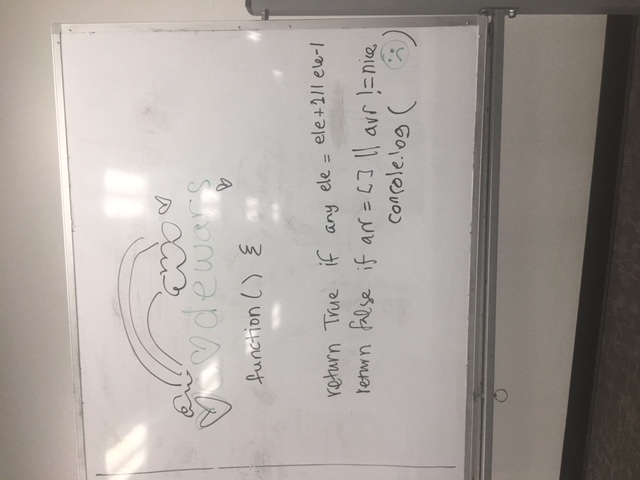 codewars
function() {
return True if any ele = ele+1 || ele-1
return false if arr = [] || arr != nice
console.log( )